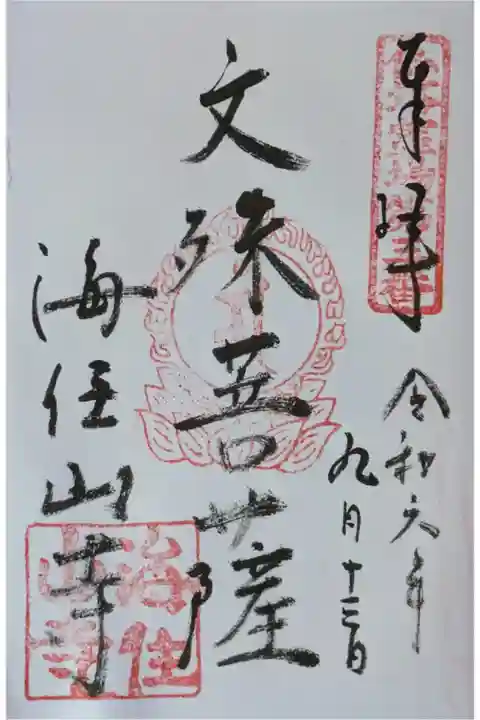 奉拝
令和六年
九月十三日
文殊菩薩
海住山寺
海住
山寺